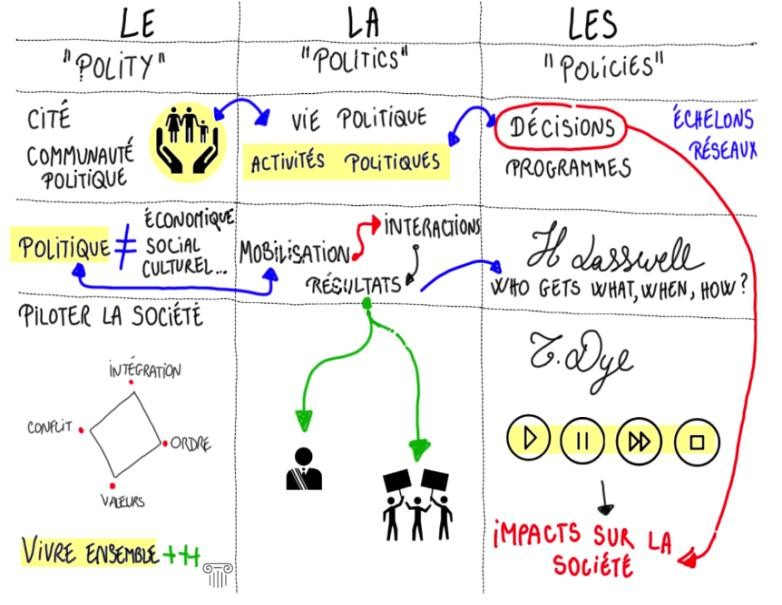 LE
LA
LES
"POLITY"
"POLITICS"
"POLICIES"
CITÉ
COMMUNAUTÉ
POLITIQUE
VIE POLITIQUE
ACTIVITÉS POLITIQUES
DÉCISIONS
PROGRAMMES
ÉCHELONS
RÉSEAUX
POLITIQUE ≠
ÉCONOMIQUE
SOCIAL
CULTUREL...
MOBILISATION
INTERACTIONS
RÉSULTATS
H Lasswell
WHO GETS WHAT, WHEN, HOW?
PILOTER LA SOCIÉTÉ
INTÉGRATION
CONFLIT
ORDRE
VALEURS
VIVRE ENSEMBLE ++++
T. Dye
IMPACTS SUR LA
SOCIÉTÉ